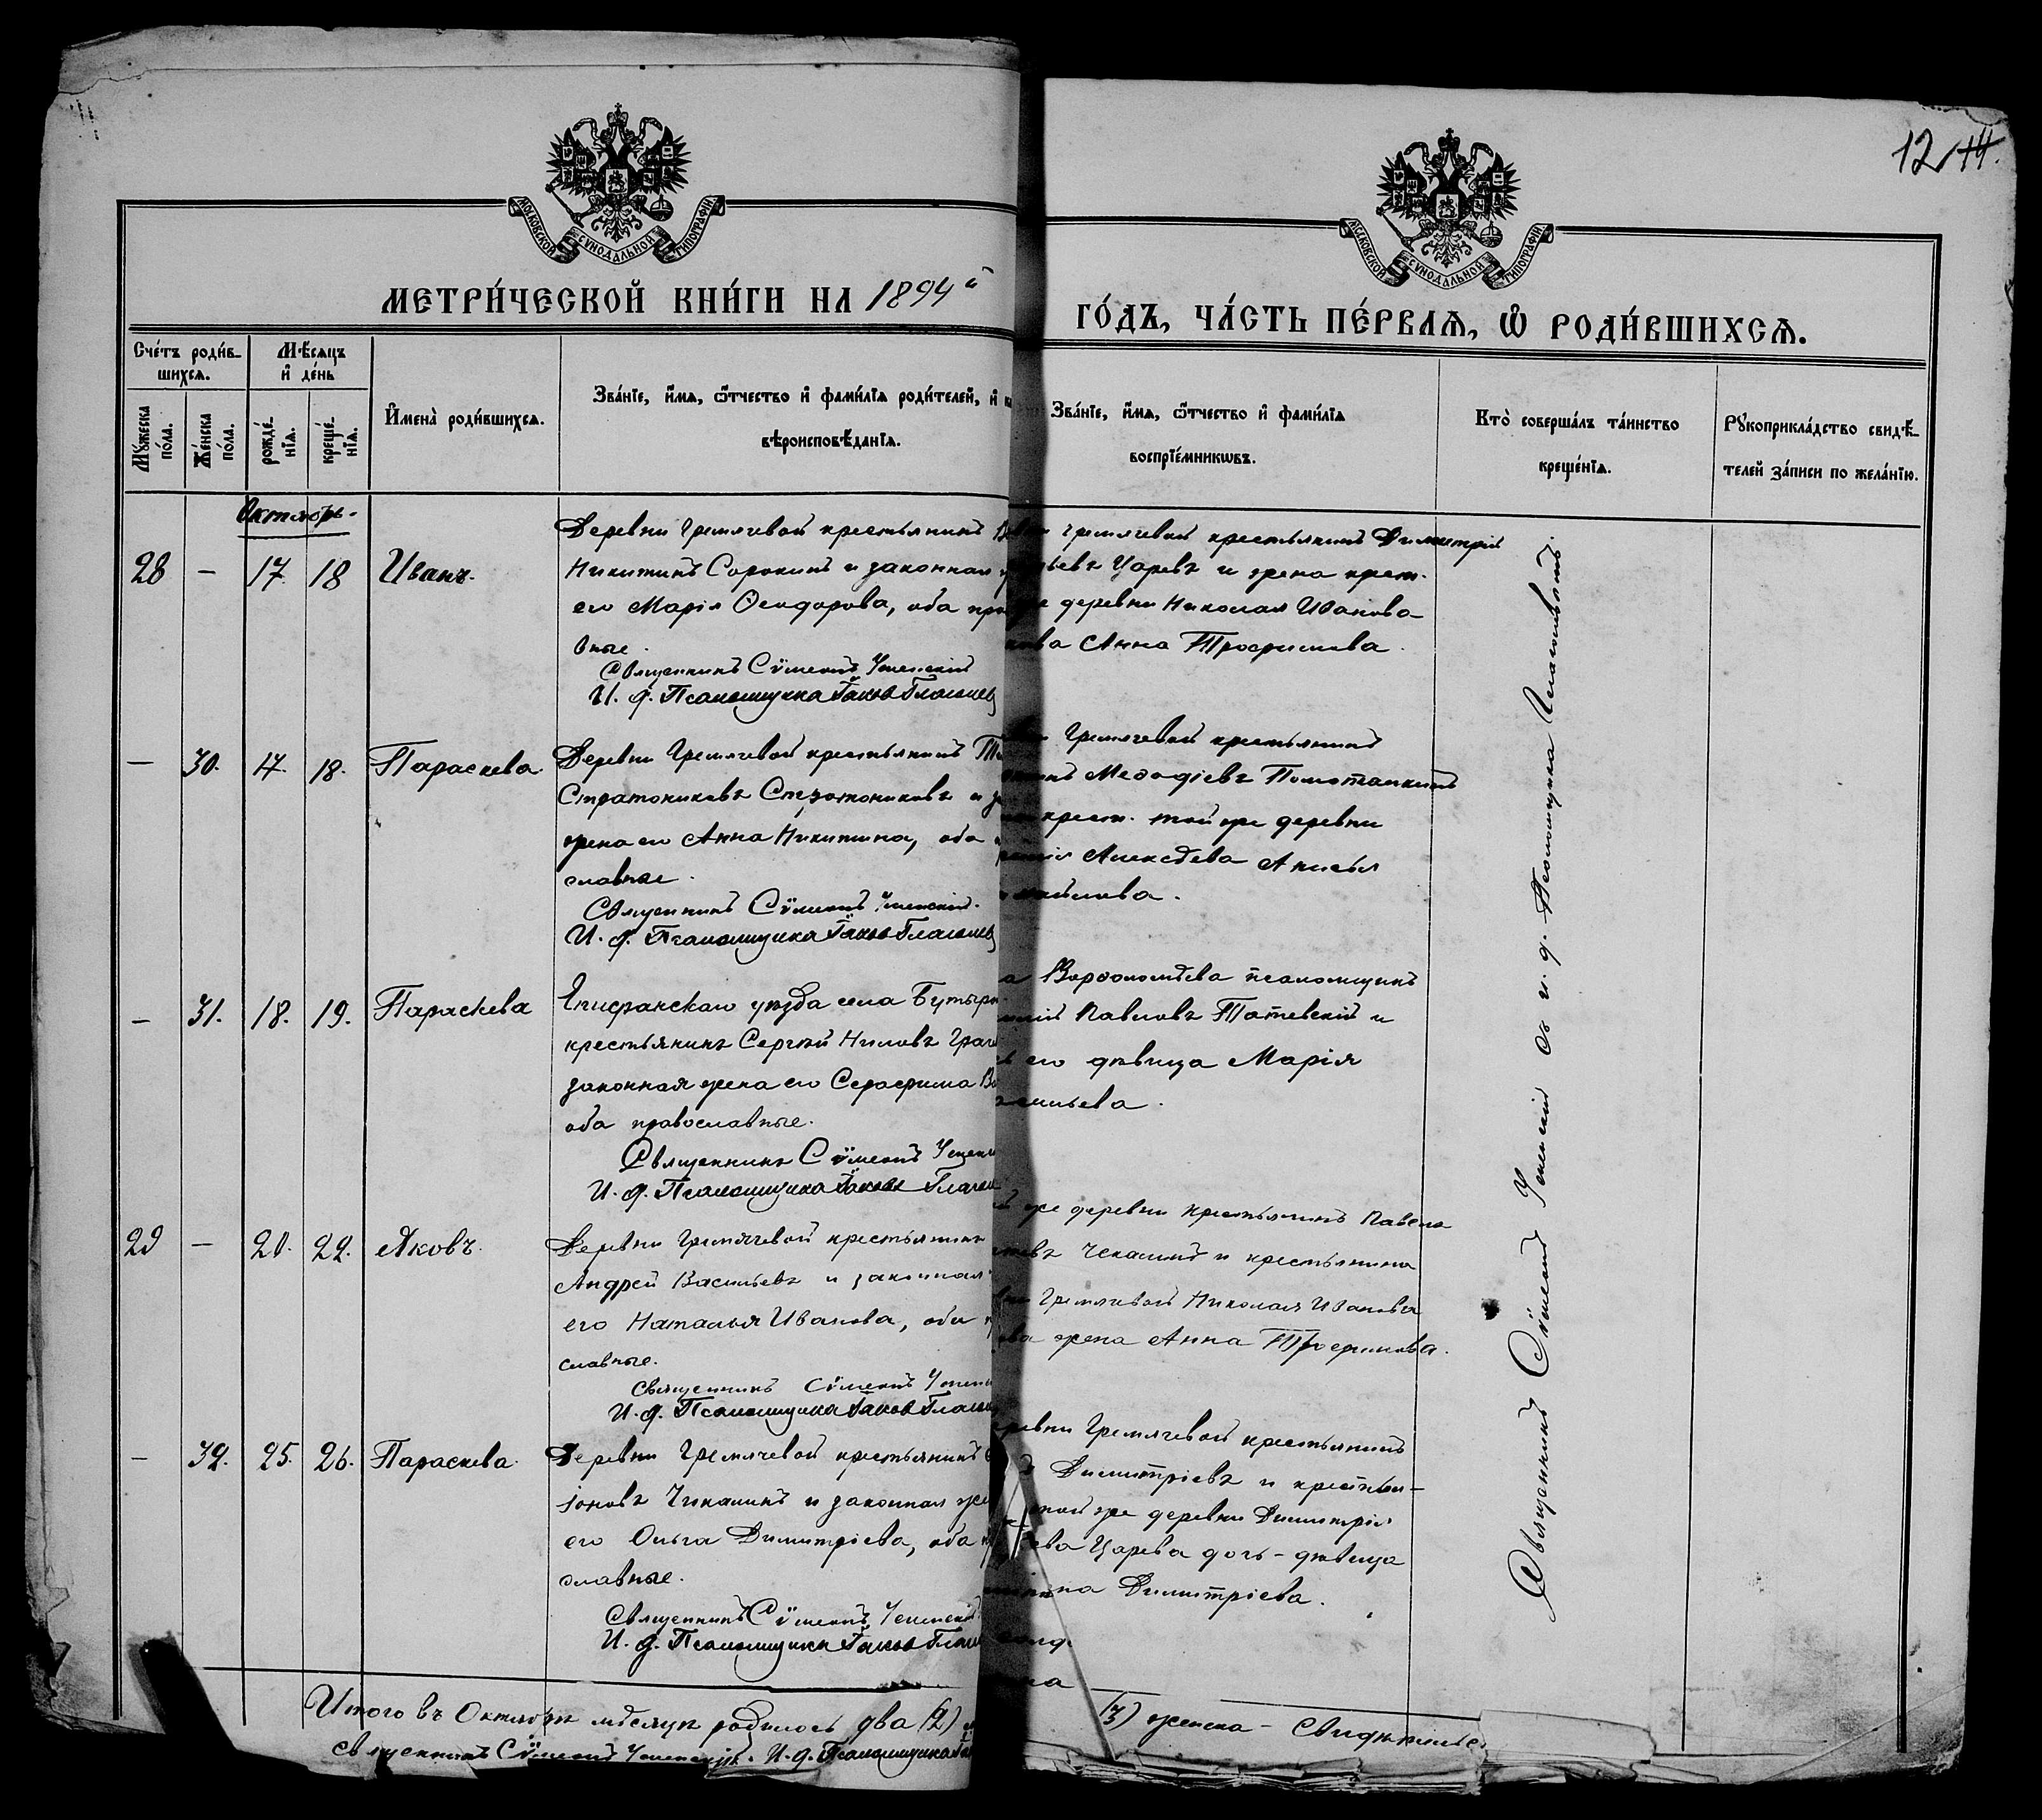 12 14.
МОСКОВСКОЙ СѴНОДАЛЬНОЙ ТИПОГРАФІИ
МОСКОВСКОЙ СѴНОДАЛЬНОЙ ТИПОГРАФІИ
МЕТРИ́ЧЕСКОЙ КНИ́ГИ НА 1894й
ГО́ДЪ, ЧА́СТЬ ПЕ́РВАѦ, Ѡ҆ РОДИ́ВШИХСѦ.
Сче́тъ роди́в-
шихсѧ.
Мꙋ́жеска по́ла.
Же́нска по́ла.
Мѣ́сѧцъ
и҆ де́нь
рожде́-
нїѧ.
креще́-
нїѧ.
И҆мена̀ роди́вшихсѧ.
Зва́нїе, и҆́мѧ, ѻ҆́тчество и҆ фами́лїѧ роди́телей, и҆
вѣроисповѣ́данїѧ.
Зва́нїе, и҆́мѧ, ѻ҆́тчество и҆ фами́лїѧ
воспрїе́мникѡвъ.
Кто̀ соверша́лъ та́инство
креще́нїѧ.
Рꙋкоприкла́дство свидѣ́-
телей за́писи по жела́нїю.
Октябрь.
28 — 17 18 Иванъ.
Деревни Гремячевой крестьянинъ
Никитинъ Сорокинъ и законная
его Марія Ѳеодорова, оба пра
вные.
Священникъ Сѵмеонъ Успенскій
И. д. Псаломщика Іаковъ Глаголев
Гремячевой крестьянинъ Димитрій
Царевъ и жена крест.
деревни Николая Иванова
Анна Трофимова.
— 30. 17. 18. Параскева.
Деревни Гремячевой крестьянинъ
Стратониковъ Стратониковъ и
жена его Анна Никитина, оба
славные.
Священникъ Сѵмеонъ Успенскій.
И. д. Псаломщика Іаковъ Глаголев
Гремячевой крестьянинъ
Меѳодіевъ
крест. той же деревни
Алексѣева Анисья
— 31. 18. 19. Параскева
Епифанскаго уѣзда села Бутыр
крестьянинъ Сергѣй Ниловъ
законная жена его Серафима
оба православные.
Священникъ Сѵмеонъ Успенс
И. д. Псаломщика Іаковъ Глагол
Варѳоломѣева псаломщикъ
Павловъ Татевскій и
его дѣвица Марія
29 — 21. 22. Яковъ.
Деревни Гремячевой крестьянинъ
Андрей Васильевъ и законная
его Наталья Иванова, оба
славные.
Священникъ Сѵмеонъ Успенс
И. д. Псаломщика Іаковъ Глагол
же деревни крестьянинъ Павелъ
Чекалинъ и крестьянина
Гремячевой Николая Иванова
жена Анна Трофимова.
— 32. 25. 26. Параскева.
Деревни Гремячевой крестьянинъ
Чикалинъ и законная же
его Ольга Димитріева, оба
славные.
Священникъ Сѵмеонъ Успенскій
И. д. Псаломщика Іаковъ Глаго
Гремячевой крестьянинъ
Димитріевъ и крестьян-
той же деревни Димитрія
Царева дочь - дѣвица
Димитріева.
Священникъ Сѵмеонъ Успенскій съ и. д. Псаломщика
Итого въ Октябрѣ мѣсяцѣ родилось два (2)
(3) женска - Свидѣтельс
священникъ Сѵмеонъ Успенскій. И. д. Псаломщика